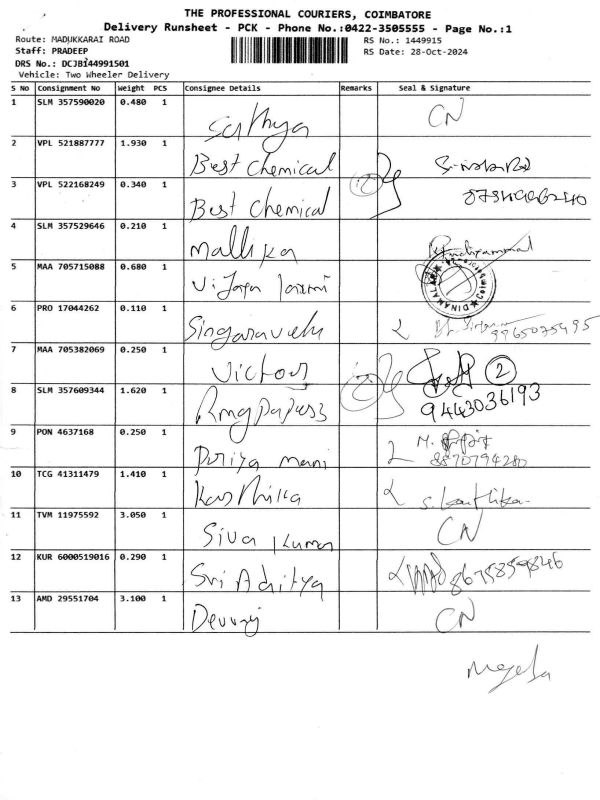 THE PROFESSIONAL COURIERS, COIMBATORE
Delivery Runsheet - PCK - Phone No.:0422-3505555 - Page No.:1
Route: MADUKKARAI ROAD RS No.: 1449915
Staff: PRADEEP RS Date: 28-Oct-2024
DRS No.: DCJB144991501
Vehicle: Two Wheeler Delivery
S No Consignment No Weight PCS Consignee Details Remarks Seal & Signature
1 SLM 357590020 0.480 1 Sathya CN
2 VPL 521887777 1.930 1 Best Chemical
3 VPL 522168249 0.340 1 Best Chemical
4 SLM 357529646 0.210 1 Mallika
5 MAA 705715088 0.680 1 Vijaya
6 PRO 17044262 0.110 1 Singaravelu 9965075495
7 MAA 705382069 0.250 1 Victory 2
8 SLM 357609344 1.620 1 9443036193
9 PON 4637168 0.250 1 Puriya mani 8870794280
10 TCG 41311479 1.410 1 Karthika S. Karthika
11 TVM 11975592 3.050 1 Siva Kumar CN
12 KUR 6000519016 0.290 1 Sri Aditya 8675859846
13 AMD 29551704 3.100 1 Devraj CN